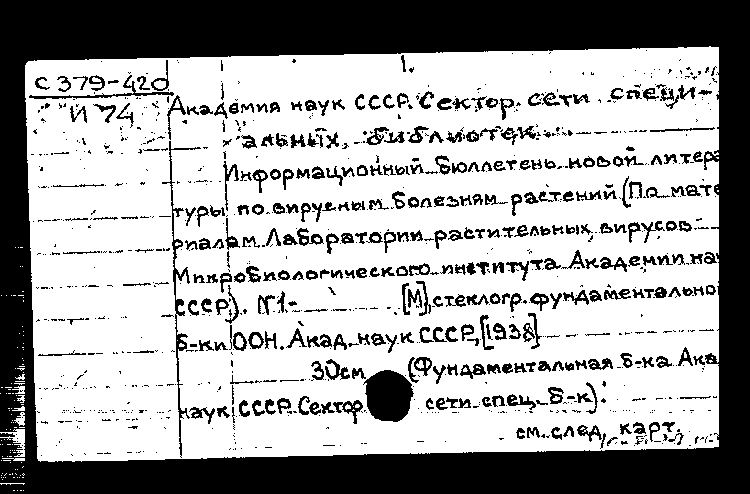 1.
С 379-420
И 74
Академия наук СССР. Сектор сети специ-
альных библиотек.
Информационный бюллетень новой литера
туры по вирусным болезням растений (По мате
риалам Лаборатории растительных вирусов
Микробиологического института Академии нау
СССР). №1-      [М], стеклогр. фундаментально
б-ки ООН. Акад. наук СССР, [1938]
30см (Фундаментальная б-ка Ака
наук СССР Сектор сети спец. б-к).
см. след, карт.